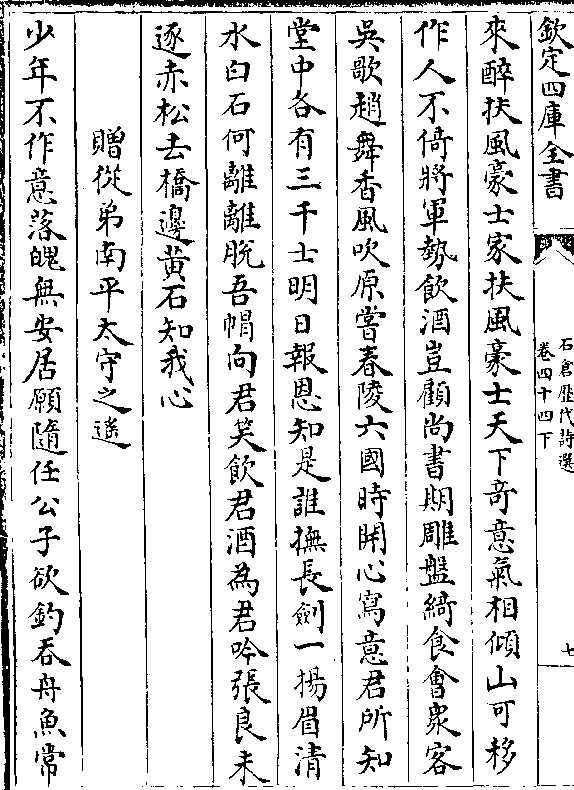 欽定四庫全書
石倉歷代詩選
卷四十四下
七
來醉扶風豪士家扶風豪士天下竒意氣相傾山可移
作人不倚將軍勢飲酒豈顧尚書期雕盤綺食會衆客
吳歌趙舞香風吹原嘗春陵六國時開心寫意君所知
堂中各有三千士明日報恩知是誰撫長劍一揚眉清
水白石何離離脫吾帽向君笑飲君酒為君吟張良未
逐赤松去橋邊黄石知我心
贈從弟南平太守之遙
少年不作意落魄無安居願隨任公子欲釣吞舟魚常